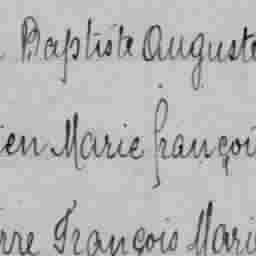 Baptiste Auguste
ien Marie françoi
rre François Mari